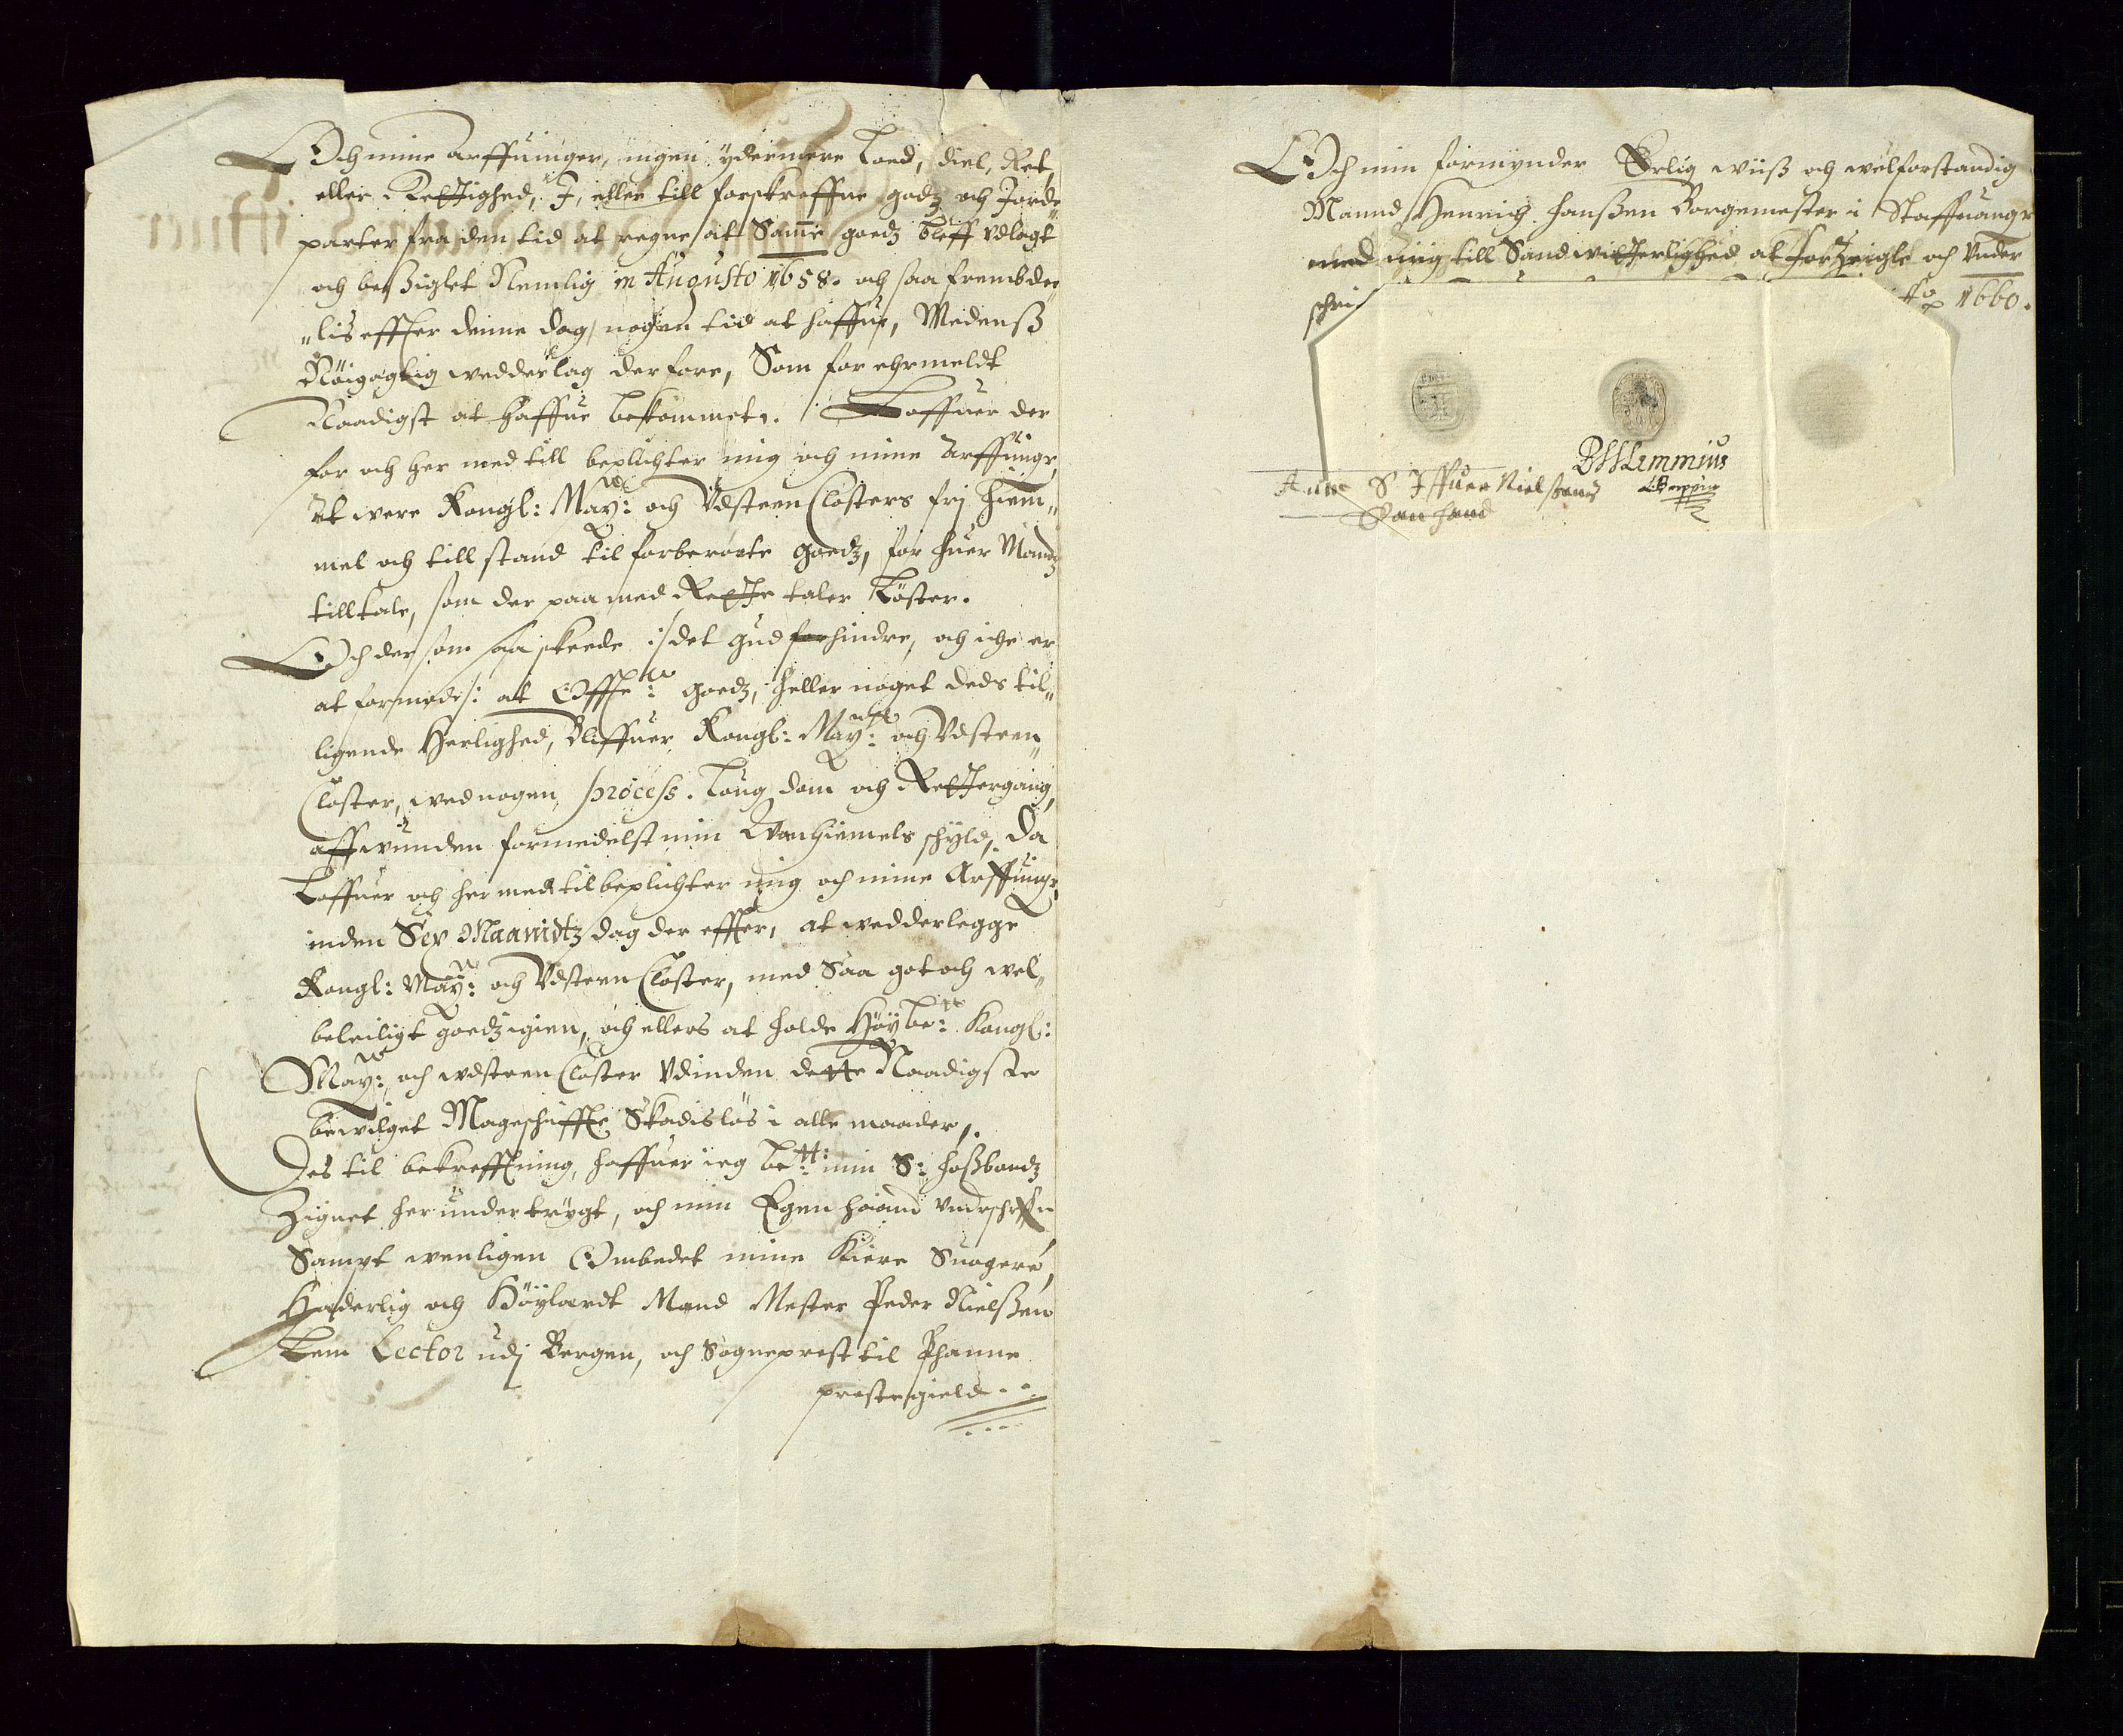 Och mine arffuinger, ingen ydermere Lod, diel, Ret,
eller Rettighed, I, eller till forskreffne godz och Jorde„
parter fra den tid at regne at Samme goedz bleff Vdlagt
och beßiglet Nemlig in Augusto 1658. och saa frembde„
„lis effter denne dag, nogen tid at haffue, Medenß
Nöigagtig wedderlag derfore, Som for ehrmeldt
Naadigst at haffue bekommet. Loffuer der
for och her med till beplichter mig och mine Arffuingr,
At were Kongl: May: och Vdsteen Closters frj hiem„
mel och tillstand til forberørte goedz, for huer Mandz
tilltale, som der paa med Rette taler køster.
Och der som saa skeede :/ det Gud forhindre, och iche er
at formode /: at Offte: goedz, heller noget deds til„
ligende Herlighed, Bleffuer Kongl: May: och Vdsteen„
Closter, wed nogen process. Loug dom och Rettergang,
affwunden formedelst min Wanhiemels schyld, Da
Loffuer och her med til beplichter mig och mine Arffuingr,
inden Sex Maanidtz dag der effter, at wedderlegge
Kongl: May: och Vdsteen Closter, med Saa got och wel„
beleiligt goedz igien, och ellers at holde Høybe: Kongl:
May: och wdsteen Closter Vdinden dette Naadigste
bewilget Mageschiffte Skadisløs i alle maader,.
Des til bekrefftning, haffuer ieg be:tt min S: hoßbondz
Zignet her under trygt, och min Egen haand Undrschreffn
Sampt wenligen Ombedet mine Kiere Suogere,
Hæderlig och Höylærdt Mand Mester Peder Nielßen
Lem Lector udj Bergen, och Sogneprest til Phanne
prestegield..
Och min formynder Erlig wiiß och welforstandig
Mannd Henrich Hanßen Borgemester i Staffuangr
med mig till Sandwitterlighed at forZeigle och Under
schri
Ao 1660.
PNLemmius
Anne S Iffuer Nielßens
Egen haand